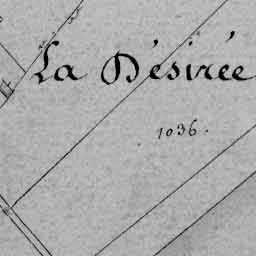 La Désirée
.1036.